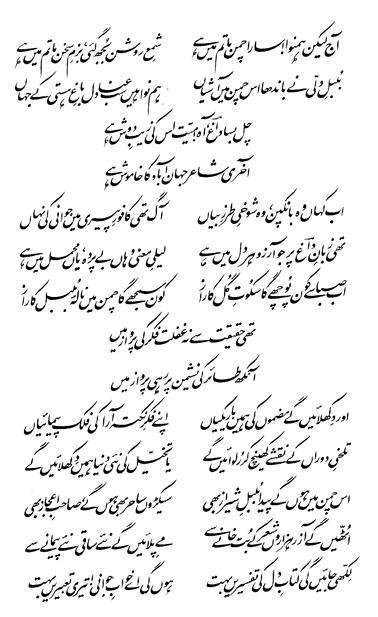 آج لیکن ہمنوا! سارا چمن ماتم میں ہے شمع روشن بجھ گئی، بزم سخن ماتم میں ہے
بلبل دلی نے باندھا اس چمن میں آشیاں ہم نوا ہیں سب عنادل باغ ہستی کے جہاں
چل بسا داغ آہ! میت اس کی زیب دوش ہے
آخری شاعر جہان آباد کا خاموش ہے
اب کہاں وہ بانکپن، وہ شوخی طرز بیاں آگ تھی کافور پیری میں جوانی کی نہاں
تھی زبان داغ پر جو آرزو ہر دل میں ہے لیلی معنی وہاں بے پردہ، یاں محمل میں ہے
اب صبا سے کون پوچھے گا سکوت گل کا راز کون سمجھے گا چمن میں نالہ بلبل کا راز
تھی حقیقت سے نہ غفلت فکر کی پرواز میں
آنکھ طائر کی نشیمن پر رہی پرواز میں
اور دکھلائیں گے مضموں کی ہمیں باریکیاں اپنے فکر نکتہ آرا کی فلک پیمائیاں
تلخی دوراں کے نقشے کھینچ کر رلوائیں گے یا تخیل کی نئی دنیا ہمیں دکھلائیں گے
اس چمن میں ہوں گے پیدا بلبل شیراز بھی سیکڑوں ساحر بھی ہوں گے صاحب اعجاز بھی
اٹھیں گے آزر ہزاروں شعر کے بت خانے سے مے پلائیں گے نئے ساقی نئے پیمانے سے
لکھی جائیں گی کتاب دل کی تفسیریں بہت ہوں گی اے خواب جوانی! تیری تعبیریں بہت